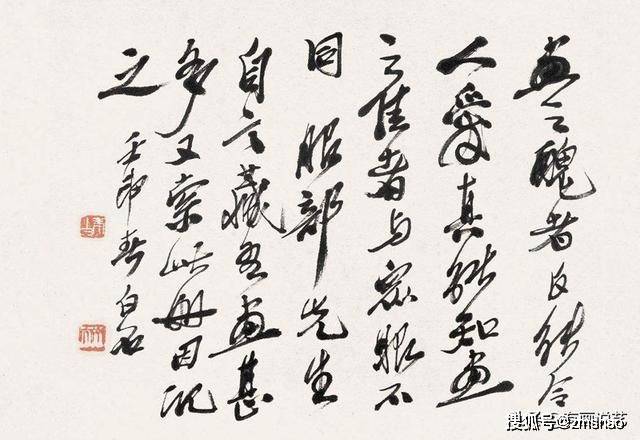 畫之醜者能令
人愛真能知畫
之佳者与衆眼不
同 服部先生
自言藏吾畫甚
多又索此册因記
之 壬申春白石
搜狐号